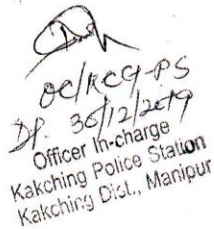 OC/KCG-PS
Dt. 30/12/2019
Officer In-charge
Kakching Police Station
Kakching Dist., Manipur